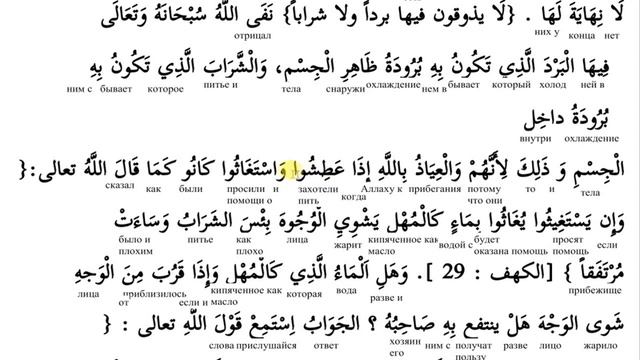 لَا نِهَايَةَ لَهَا . {لَا يذوقون فيها برداً ولا شراباً} نَفَى اللَّهُ سُبْحَانَهُ وَتَعَالَى
них у конца нет
отрицал
فِيهَا الْبَرْدَ الَّذِي تَكُونُ بِهِ بُرُودَةُ ظَاهِرِ الْجِسْمِ، وَالشَّرَابَ الَّذِي تَكُونُ بِهِ
ним с бывает которое питье и тела снаружи охлаждение нем в бывает который холод ней в
بُرُودَةُ داخِلِ
внутри охлаждение
الْجِسْمِ وَ ذَلِكَ لِأَنَّهُمْ وَالْعِيَاذُ بِاللَّهِ إِذَا عَطِشُوا وَاسْتَغَاثُوا كَانُو كَمَا قَالَ اللَّهُ تعالى:{
сказал как были просили и захотели Аллаху к прибегания потому то и тела
помощи о пить когда что они
وَإِن يَسْتَغِيثُوا يُغَاثُوا بِمَاءٍ كَالْمُهْلِ يَشْوِي الْوُجُوهَ بِئْسَ الشَّرَابُ وَسَاءَتْ
было и питье как лица жарит кипяченное как водой с будет просят если
плохим плохо масло оказана помощь помощь
مُرْتَفَقاً } [الكهف : 29 ]. وَهَلِ اَلْمَاءُ الَّذِي كَالْمُهْلِ وَإِذَا قَرُبَ مِنَ الْوَجهِ
лица приблизилось кипяченное как которая вода прибежище
от если и масло разве и
شَوى الوَجْهَ هَلْ ينتفع بِهِ صَاحِبُهُ ؟ الجَوَابُ اِسْتَمِعْ قَوْلَ اللَّهِ تعالى : {
слова прислушайся ответ хозяин ним с получат разве лицо жарило
его пользу